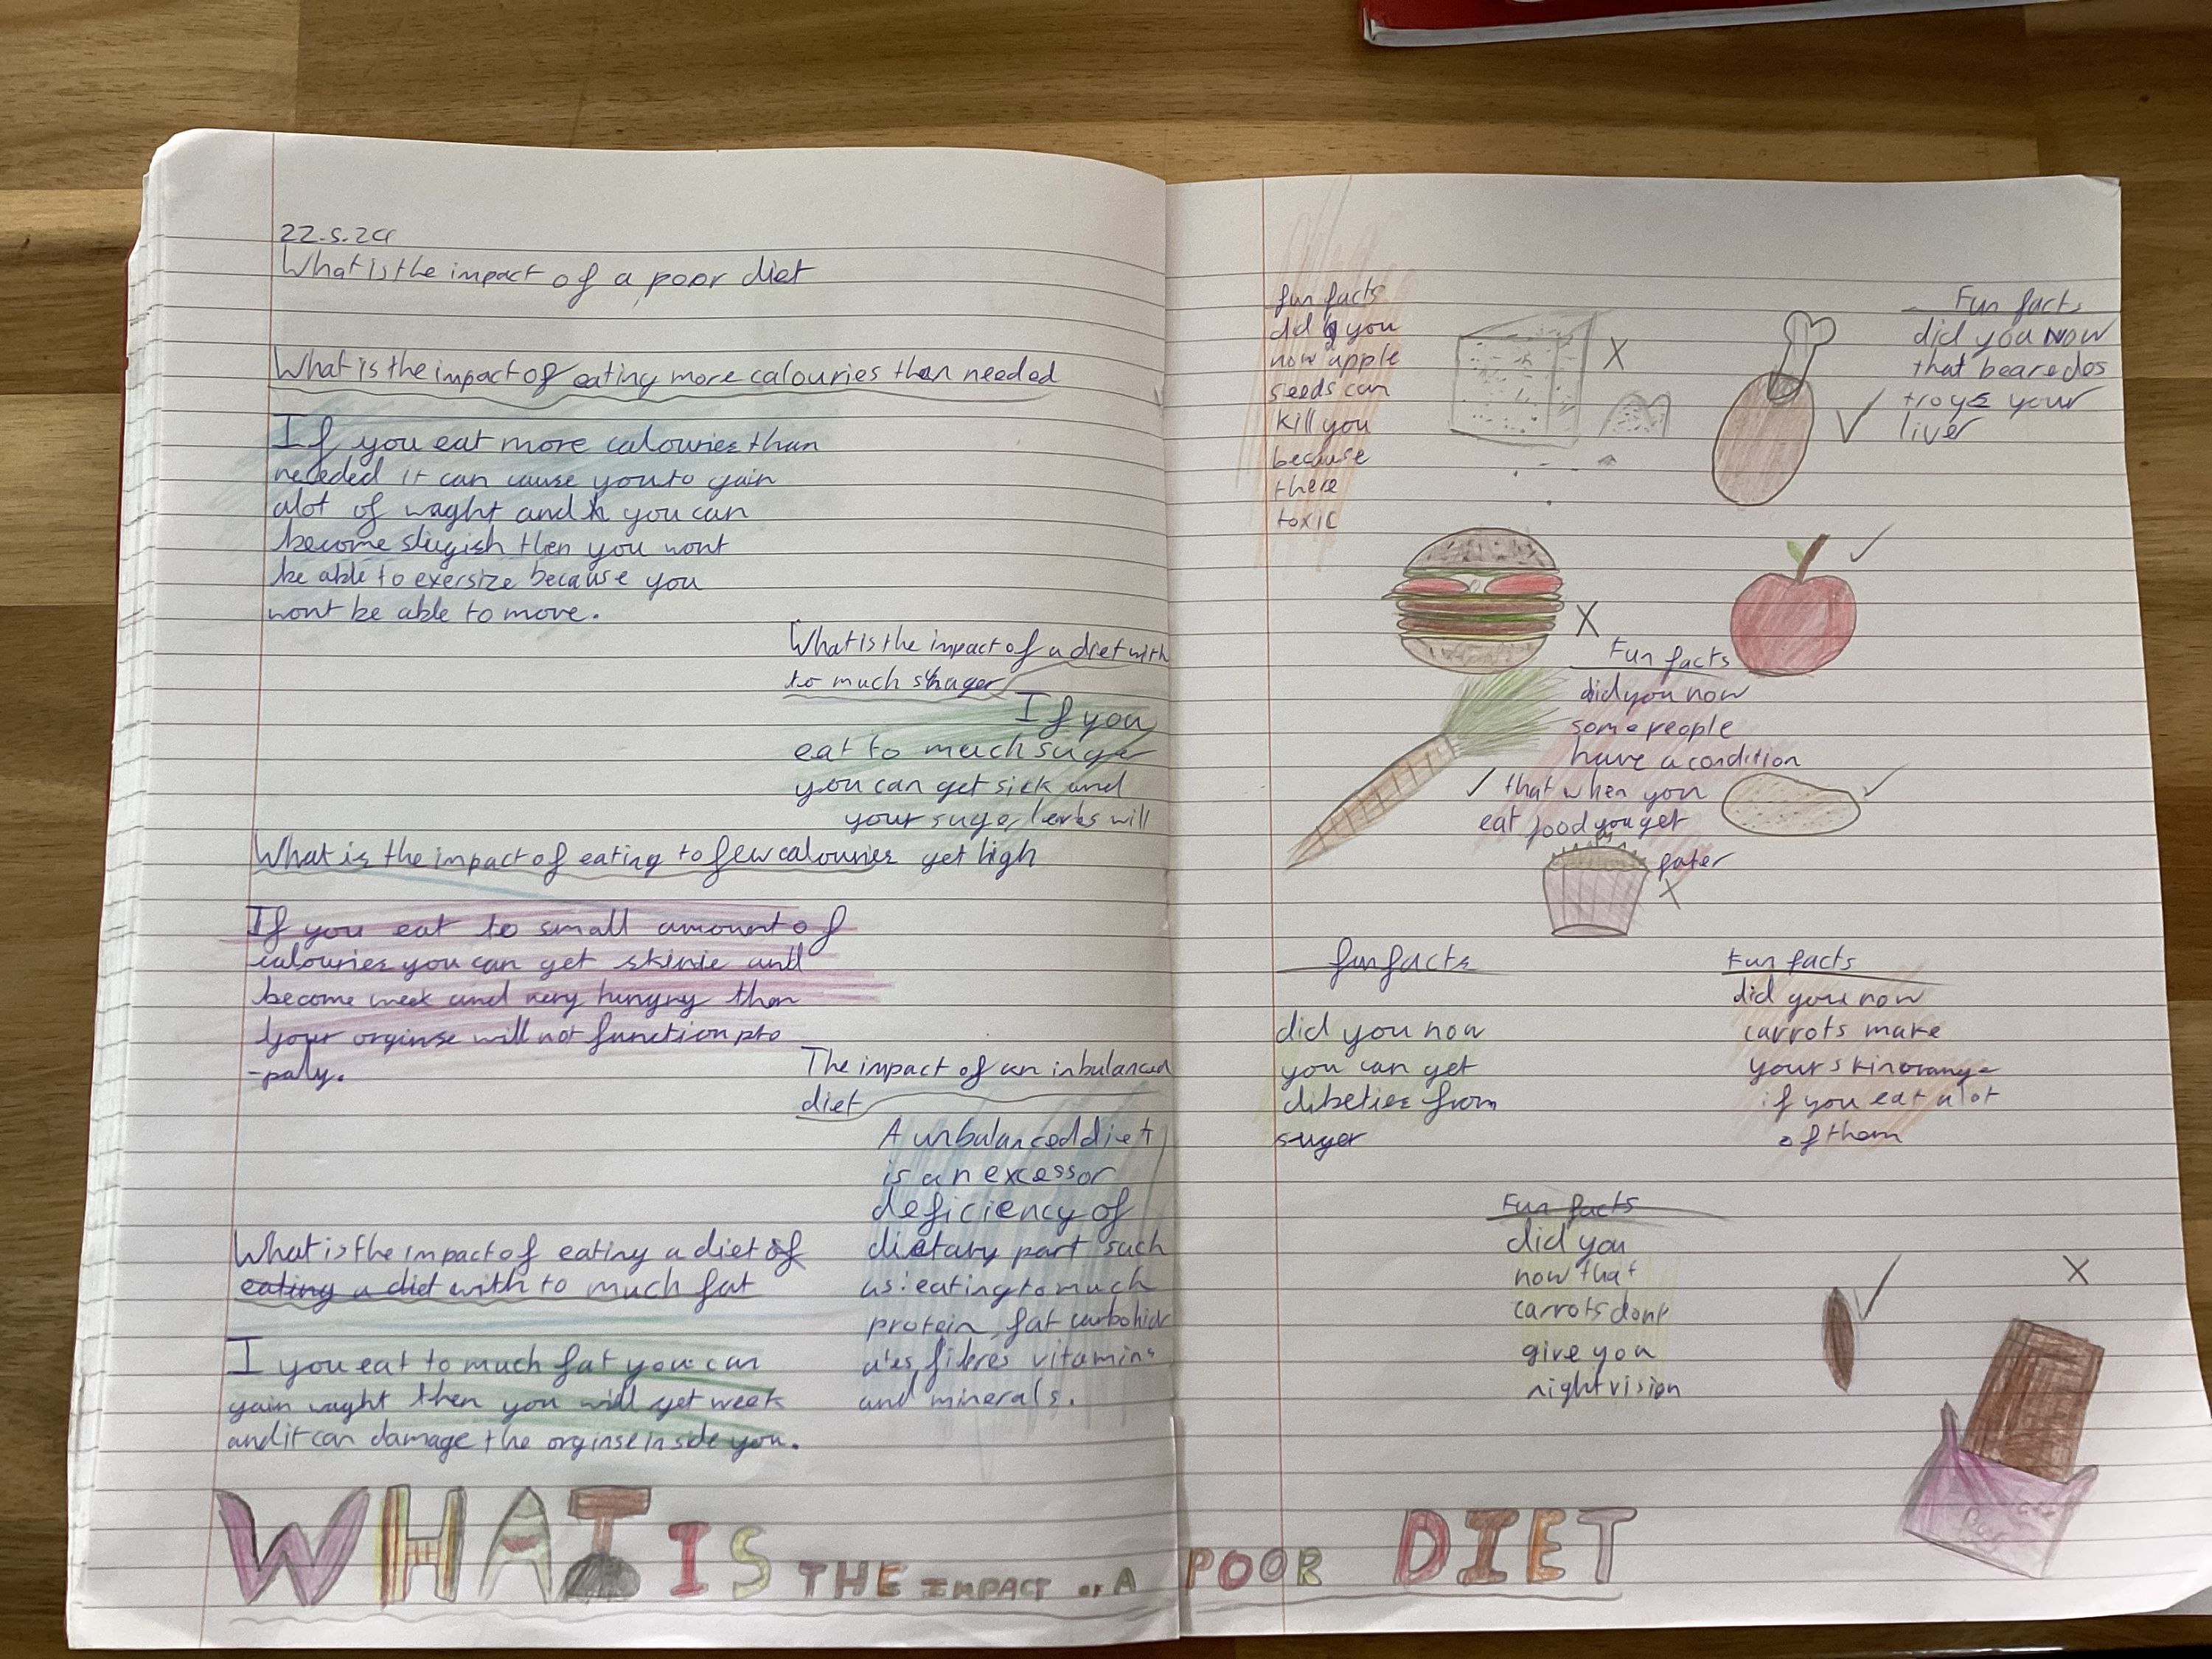 22.5.24
What is the impact of a poor diet
What is the impact of eating more calouries than needed
If you eat more calouries than
needed it can cause you to gain
alot of waght and you can
become slugish then you wont
be able to exersize because you
wont be able to move.
What is the impact of a diet with
to much shager
If you
eat to much suger
you can get sick and
your suger levbs will
get high
What is the impact of eating to few calouries
If you eat to small amount of
calouries you can get skinie and
become week and very hungry then
your orginse will not function pro
-paly.
The impact of an inbalanced
diet
A unbalanced diet
is an excess or
deficiency of
dietary part such
as: eating to much
protein, fat carbohidr
ates, fiberes vitamins
and minerals.
What is the impact of eating a diet of
eating a diet with to much fat
I you eat to much fat you can
gain waght then you will get week
and it can damage the orginse inside you.
WHAT IS THE IMPACT OF A POOR DIET
fun facts
did you
now apple
seeds can
kill you
because
there
toxic
X
Fun facts
did you now
that beare des
troys your
liver
X
Fun facts
did you now
some people
have a condition
that when you
eat food you get
fater
X
fun facts
did you now
you can get
dibeties from
suger
Fun facts
did you now
carrots make
your skin orange
if you eat a lot
of them
Fun facts
did you
now that
carrots dont
give you
night vision
X